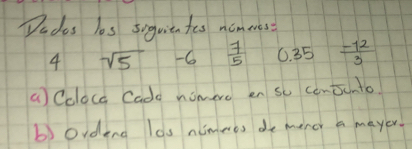 Dados los siguientes números:
4 √5 -6 7/5 0.35 -12/3
a) Coloca Cada número en su conjunto.
b) Ordena los números de menor a mayor.